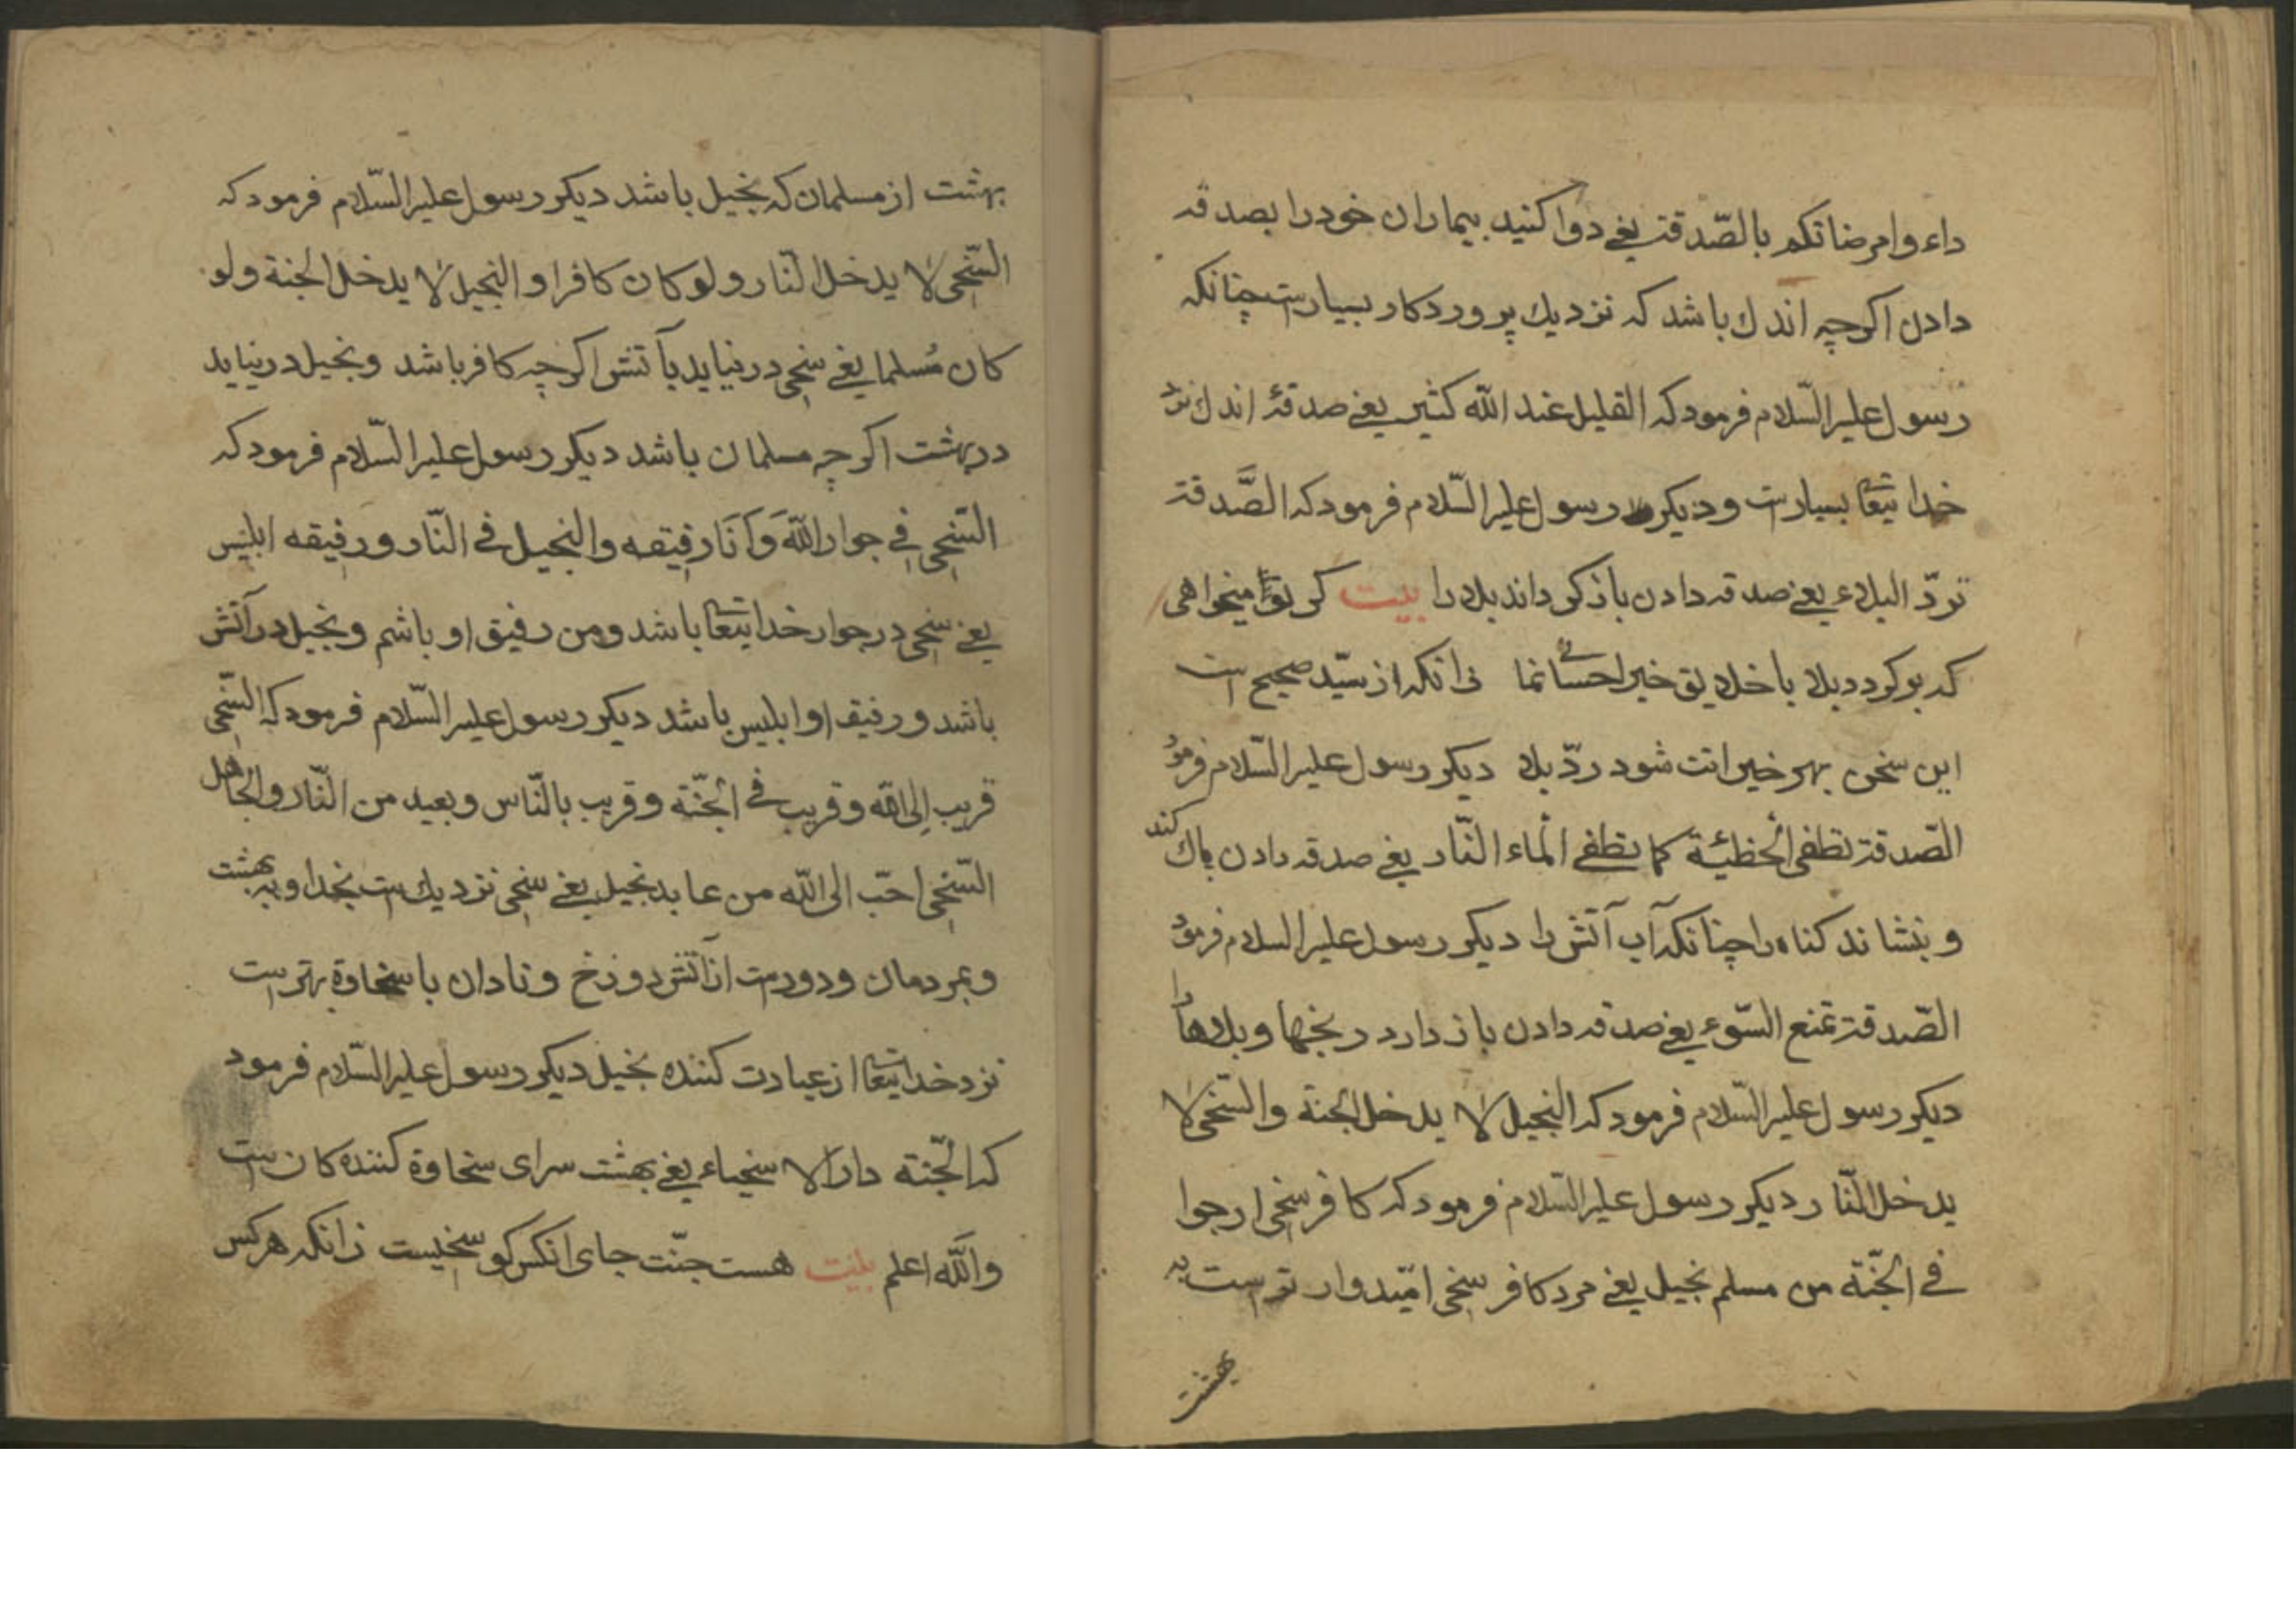 داء وامرضاتکم بالصّدقة یعنے دوا کنید بیماران خود را بصدقه
دادن اکرچه اندك باشد که نزدیك پروردکار بسیارست چنانکه
رسول علیه السّلام فرمود که القلیل عند الله کثیر یعنے صدقهٔ اندك نزد
خدایتعا بسیارست و دیکر رسول علیه السّلام فرمود که الصَّدقة
تردّ البلاء یعنے صدقه دادن باز کرداند بلا را بیت کر تو میخواهی
که بر کردد بلا با خلایق خیر احسانے نما زانکه از سیّد صحیح است
این سخن بهر خیرات شود ردّ بلا دیکر رسول علیه السّلام فرمود
الصّدقة تطفی الخطیئة کما تطفے الماء النّار یعنے صدقه دادن پاك کند
و بنشاند کناه را چنانکه آب آتش را دیکر رسول علیه السلام فرمود
الصّدقة تمنع السّوء یعنے صدقه دادن باز دارد رنجها و بلاها را
دیکر رسول علیه السّلام فرمود که البخیل لا یدخل الجنة والسّخی لا
یدخل النّار دیکر رسول علیه السّلام فرمود که کافر سخی ارجوا
فے الجنّة من مسلم بخیل یعنے مرد کافر سخی امّیدوارترست به
بهشت
بهشت از مسلمان که بخیل باشد دیکر رسول علیه السّلام فرمود که
السّخی لا یدخل النّار ولو کان کافرا والبخیل لا یدخل الجنة ولو
کان مُسلما یعنے سخی در نیاید بآتش اکرچه کافر باشد و بخیل در نیاید
در بهشت اکرچه مسلمان باشد دیکر رسول علیه السّلام فرمود که
السّخی فے جوار اللّٰه وَاَنَا رفیقه والبخیل فے النّار ورفیقه ابلیس
یعنے سخی در جوار خدایتعا باشد ومن رفیق او باشم و بخیل در آتش
باشد و رفیق او ابلیس باشد دیکر رسول علیه السّلام فرمود که السّخی
قریب اِلی اللّه وقریب فے الجنّة وقریب بالنّاس وبعید من النّار والجاهل
السّخی احبّ الی اللّه من عابد بخیل یعنے سخی نزدیك ست بخدا و به بهشت
و بمردمان و دورست از آتش دوزخ و نادان با سخاوة بهترست
نزد خدایتعا از عبادت کننده بخیل دیکر رسول علیه السّلام فرمود
که الجّنة دار الاسخیاء یعنے بهشت سرای سخاوة کننده کانست
واللّٰه اعلم بیت هست جنّت جای انکس کو سخیست زانکه هر کس